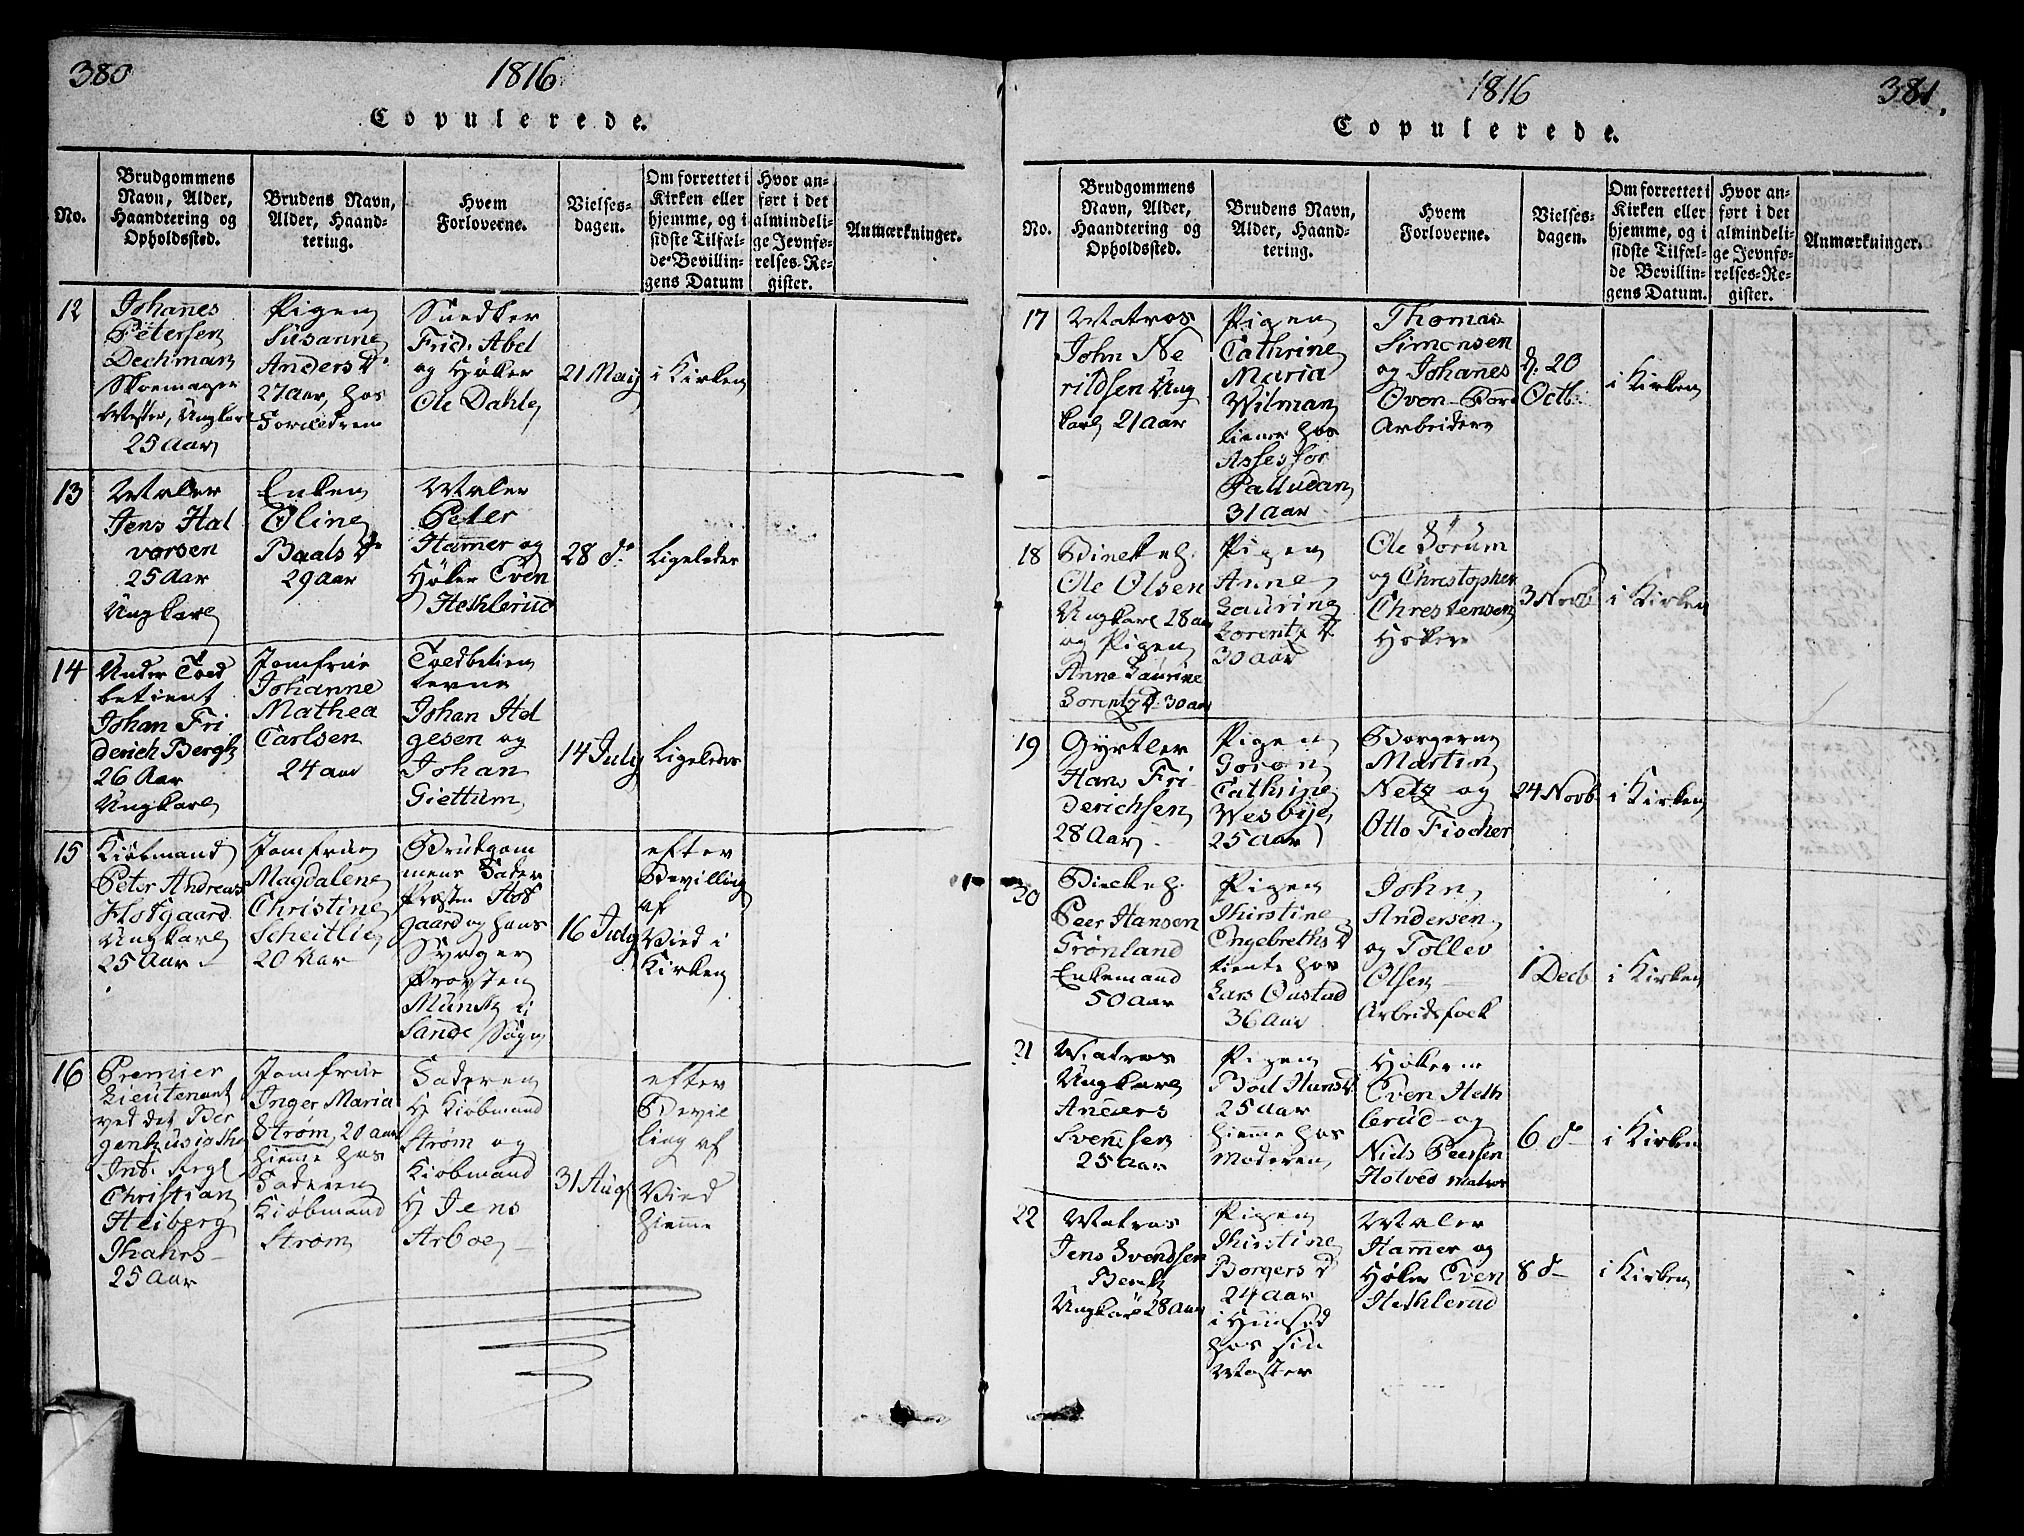 380
1816
Copulerede.
No.
Brudgommens
Navn, Alder,
Haandtering og
Opholdssted.
Brudens Navn,
Alder, Haand-
tering.
Hvem
Forloverne.
Vielses-
dagen.
Om forrettet i
Kirken eller
hjemme, og i
sidste Tilfæl-
de Bevillin-
gens Datum
Hvor an-
ført i det
almindeli-
ge Jevnfø-
relses-Re-
gister.
Anmærkninger.
12
Johannes
Petersen
Dechman
Skoemager
Mester, Ungkarl
25 Aar
Pigen
Susanne
Anders D.
27 Aar, hos
Forældrene
Snedker
Frid. Abel
og Høker
Ole Dahl
21 May
i Kirken
13
Maler
Jens Hal
vorsen
25 Aar
Ungkarl
Enken
Oline
Baals D.
29 Aar
Maler
Peter
Hammer og
Høker Even
Hethlerud
28 d.
Ligeledes
14
Under Toed
betient
Johan Fri
derich Bergh
26 Aar
Ungkarl
Jomfrue
Johanne
Mathea
Carlsen
24 aar
Toedbetien
terne
Johan Hel
gesen og
Johan
Giettum
14 July
Ligeledes
15
Kiøbmand
Peter Andreas
Hofgaard
Ungkarl
25 Aar
Jomfrue
Magdalene
Christine
Scheitlie
20 Aar
Brudgom
mens Fader
Provsten Hof
gaard og hans
Svoger
Provsten
Münster i
Sande Sogn
16 July
efter
Bevilling
af
Vied i
Kirken
16
Premier
Lieutenant
ved det Ber
genhusiske
Inf. Reg.
Christian
Heiberg
Thahrs
25 Aar
Jomfrue
Inger Maria
Strøm, 20 aar
hiemme hos
Faderen
Kiøbmand
Strøm
Faderen
H. Kiøbmand
Strøm og
Kiøbmand
H. Jens
Arboe
31 Aug
efter
Bevil
ling af
Vied
hiemme
1816
381.
Copulerede.
No.
Brudgommens
Navn, Alder,
Haandtering og
Opholdssted.
Brudens Navn,
Alder, Haand-
tering.
Hvem
Forloverne.
Vielses-
dagen.
Om forrettet i
Kirken eller
hjemme, og i
sidste Tilfæl-
de Bevillin-
gens Datum.
Hvor an-
ført i det
almindeli-
ge Jevnfø-
relses-Re-
gister.
Anmærkninger.
17
Matros
John Ne
rildsen Ung
karl 21 aar
Pigen
Cathrine
Maria
Wilman
tiener hos
Assessor
Palludan
31 Aar
Thomas
Simonsen
og Johannes
Oven
Arbeidere
d. 20
Octb.
i Kirken
18
Ole Olsen
Ungkarl 28 aar
og Pigen
Anne Laurine
Lorentz D. 30 aar
Pigen
Anne
Laurine
Lorentz D.
30 Aar
Ole Børum
og Christopher
Christensen
Høkere
3 Novb
i Kirken
19
Gyrtler
Hans Fri
derichsen
28 Aar
Pigen
Goron
Cathrine
Wesbye
25 Aar
Borgerne
Martin
Netz og
Otto Fischer
24 Novb.
i Kirken
20
Peer Hansen
Grønland
Enkemand
50 Aar
Pigen
Thirstine
Engebreths D
tiente hos
Lars Onstad
36 Aar
John
Andersen
og Tollev
Olsen
Arbeidsfolk
1 Decb
i Kirken
21
Matros
Ungkarl
Anders
Svendsen
25 Aar
Pigen
Boel Hans D.
25 Aar
hiemme hos
Moderen
Høkerne
Even Heth
lerud og
Niels Peersen
Holved matros
6 d
i Kirken
22
Matros
Jens Svendsen
Berh
Ungkarl 28 Aar
Pigen
Thirstine
Borgers D
24 Aar
i Huuset
hos sin
Moster
Maler
Hammer og
Høker Even
Hethlerud
8 d
i Kirken